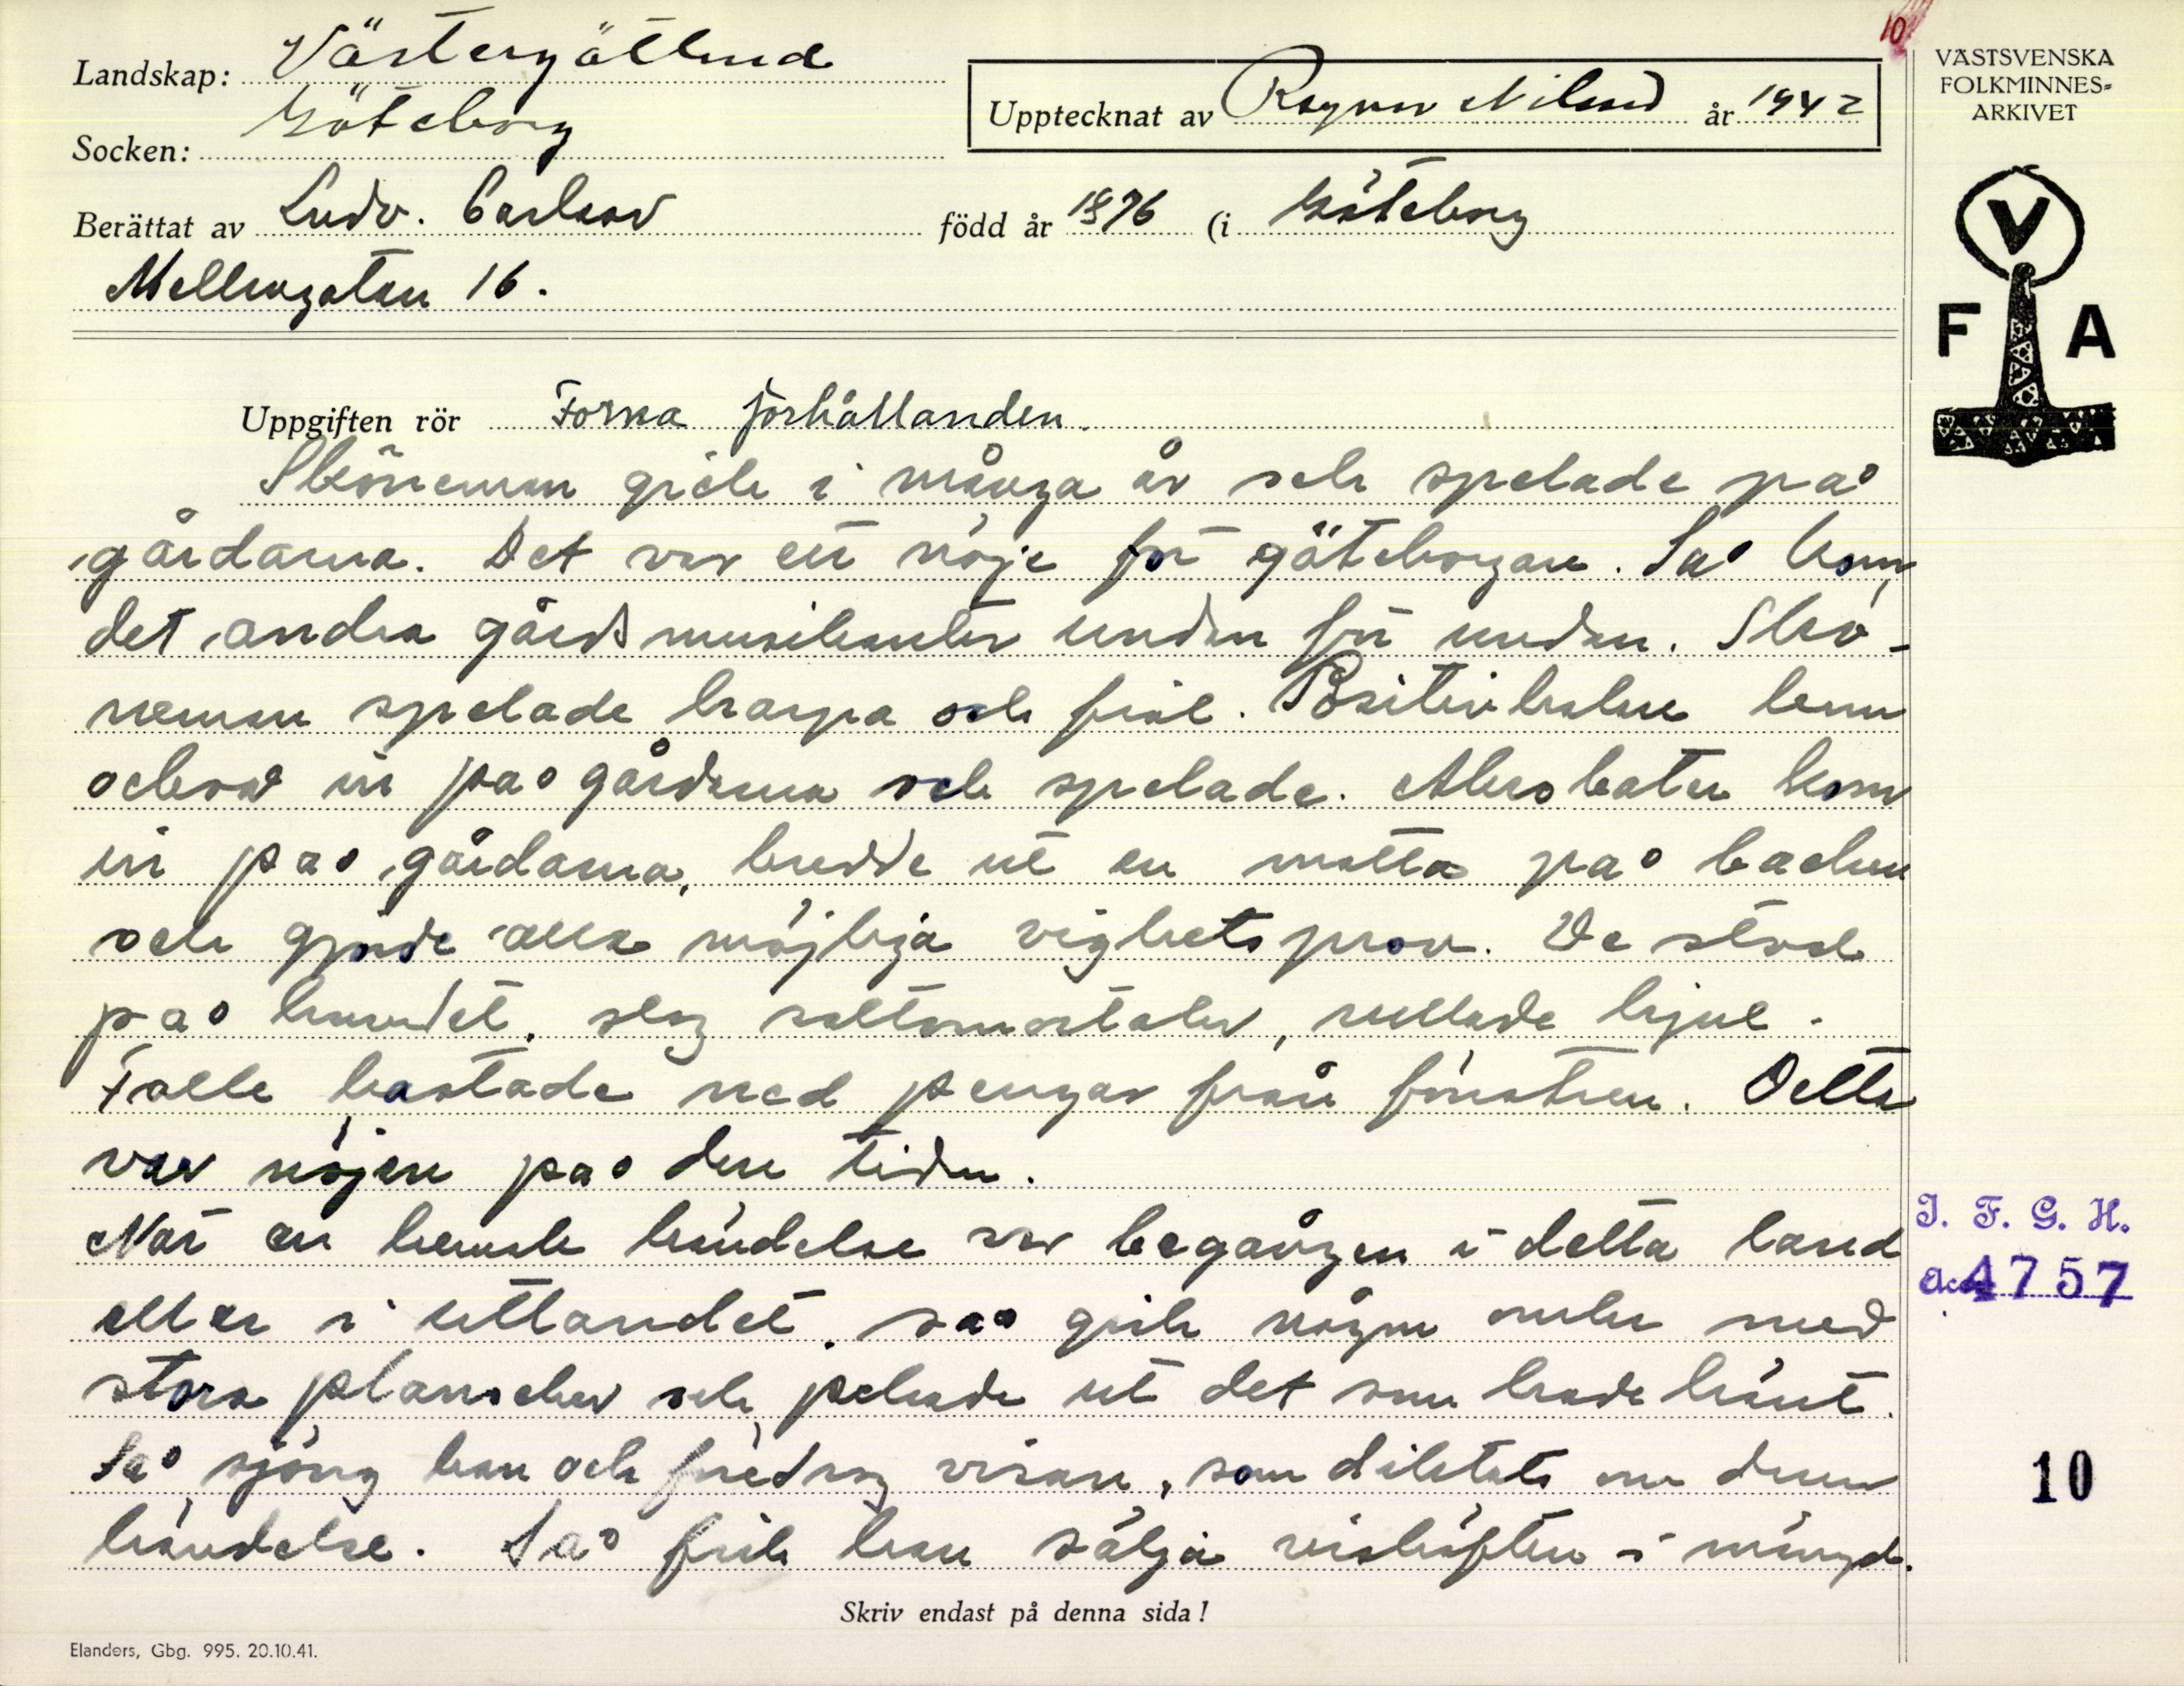 10
Landskap: Västergötland
Socken: Göteborg
Upptecknat av Ragnar Nilsson år 1942
VÄSTSVENSKA
FOLKMINNES-
ARKIVET
Berättat av Ludv. Carlson född år 1876 (i Göteborg
Mellangatan 16.
V
F A
Uppgiften rör Forna förhållanden.
gick i många år och spelade på
gårdarna. Det var ett nöje för göteborgaren. Så kom
det andra gårdsmusikanter undan för undan.
spelade harpa och fiol. Positivhalare kom
också in på gårdarna och spelade. Akrobater kom
in på gårdarna, bredde ut en matta på backen
och gjorde alla möjliga vighetsprov. De stod
på huvudet, slog saltomortaler, rullade hjul.
Folk kastade ned pengar från fönstren. Detta
var nöjen på den tiden.
När en hemsk händelse var begången i detta land
eller i utlandet, så gick någon omkr med
stora planscher och pekade ut det som hade hänt.
Så sjöng han och föredrog visan, som diktats om denna
händelse. Så fick han sälja vishäften i mängd.
I. F. G. H.
Acc. 4757
10
Skriv endast på denna sida!
Elanders, Gbg. 995. 20.10.41.